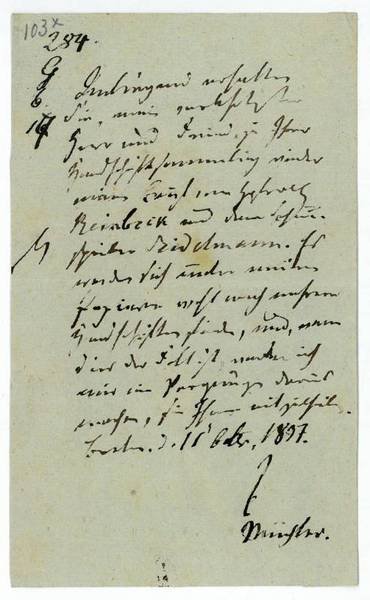 103x
284.
Anliegend erhalten
Sie, mein verehrtester
Herr und Freund, zu Ihrer
Handschriftsammlung wieder
einen von Hofrath
Reinbeck und dem Schau-
spieler Seidelmann. Es
werden sich unter meinen
Papieren wohl noch mehrere
Handschriften finden, und, wenn
dies der Fall ist, werde ich
mir ein Vergnügen daraus
machen, sie Ihnen mitzutheilen.
Berlin. d. 11 1837.
Müchler.